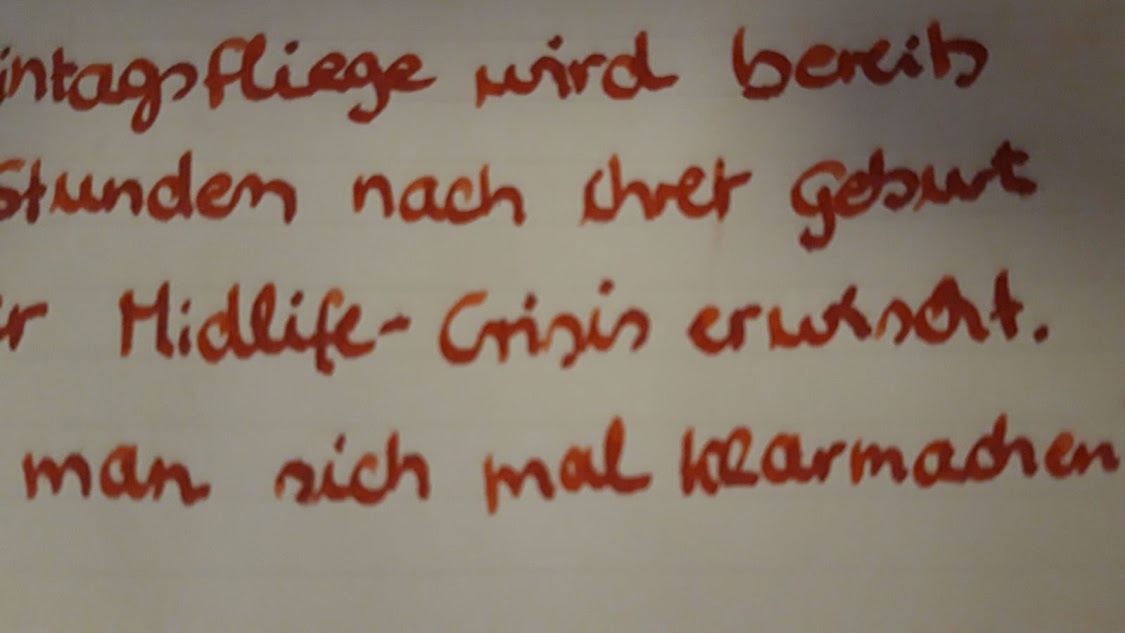 intagsfliege wird bereits
Stunden nach ihrer Geburt
er Midlife-Crisis erwischt.
man sich mal klarmachen